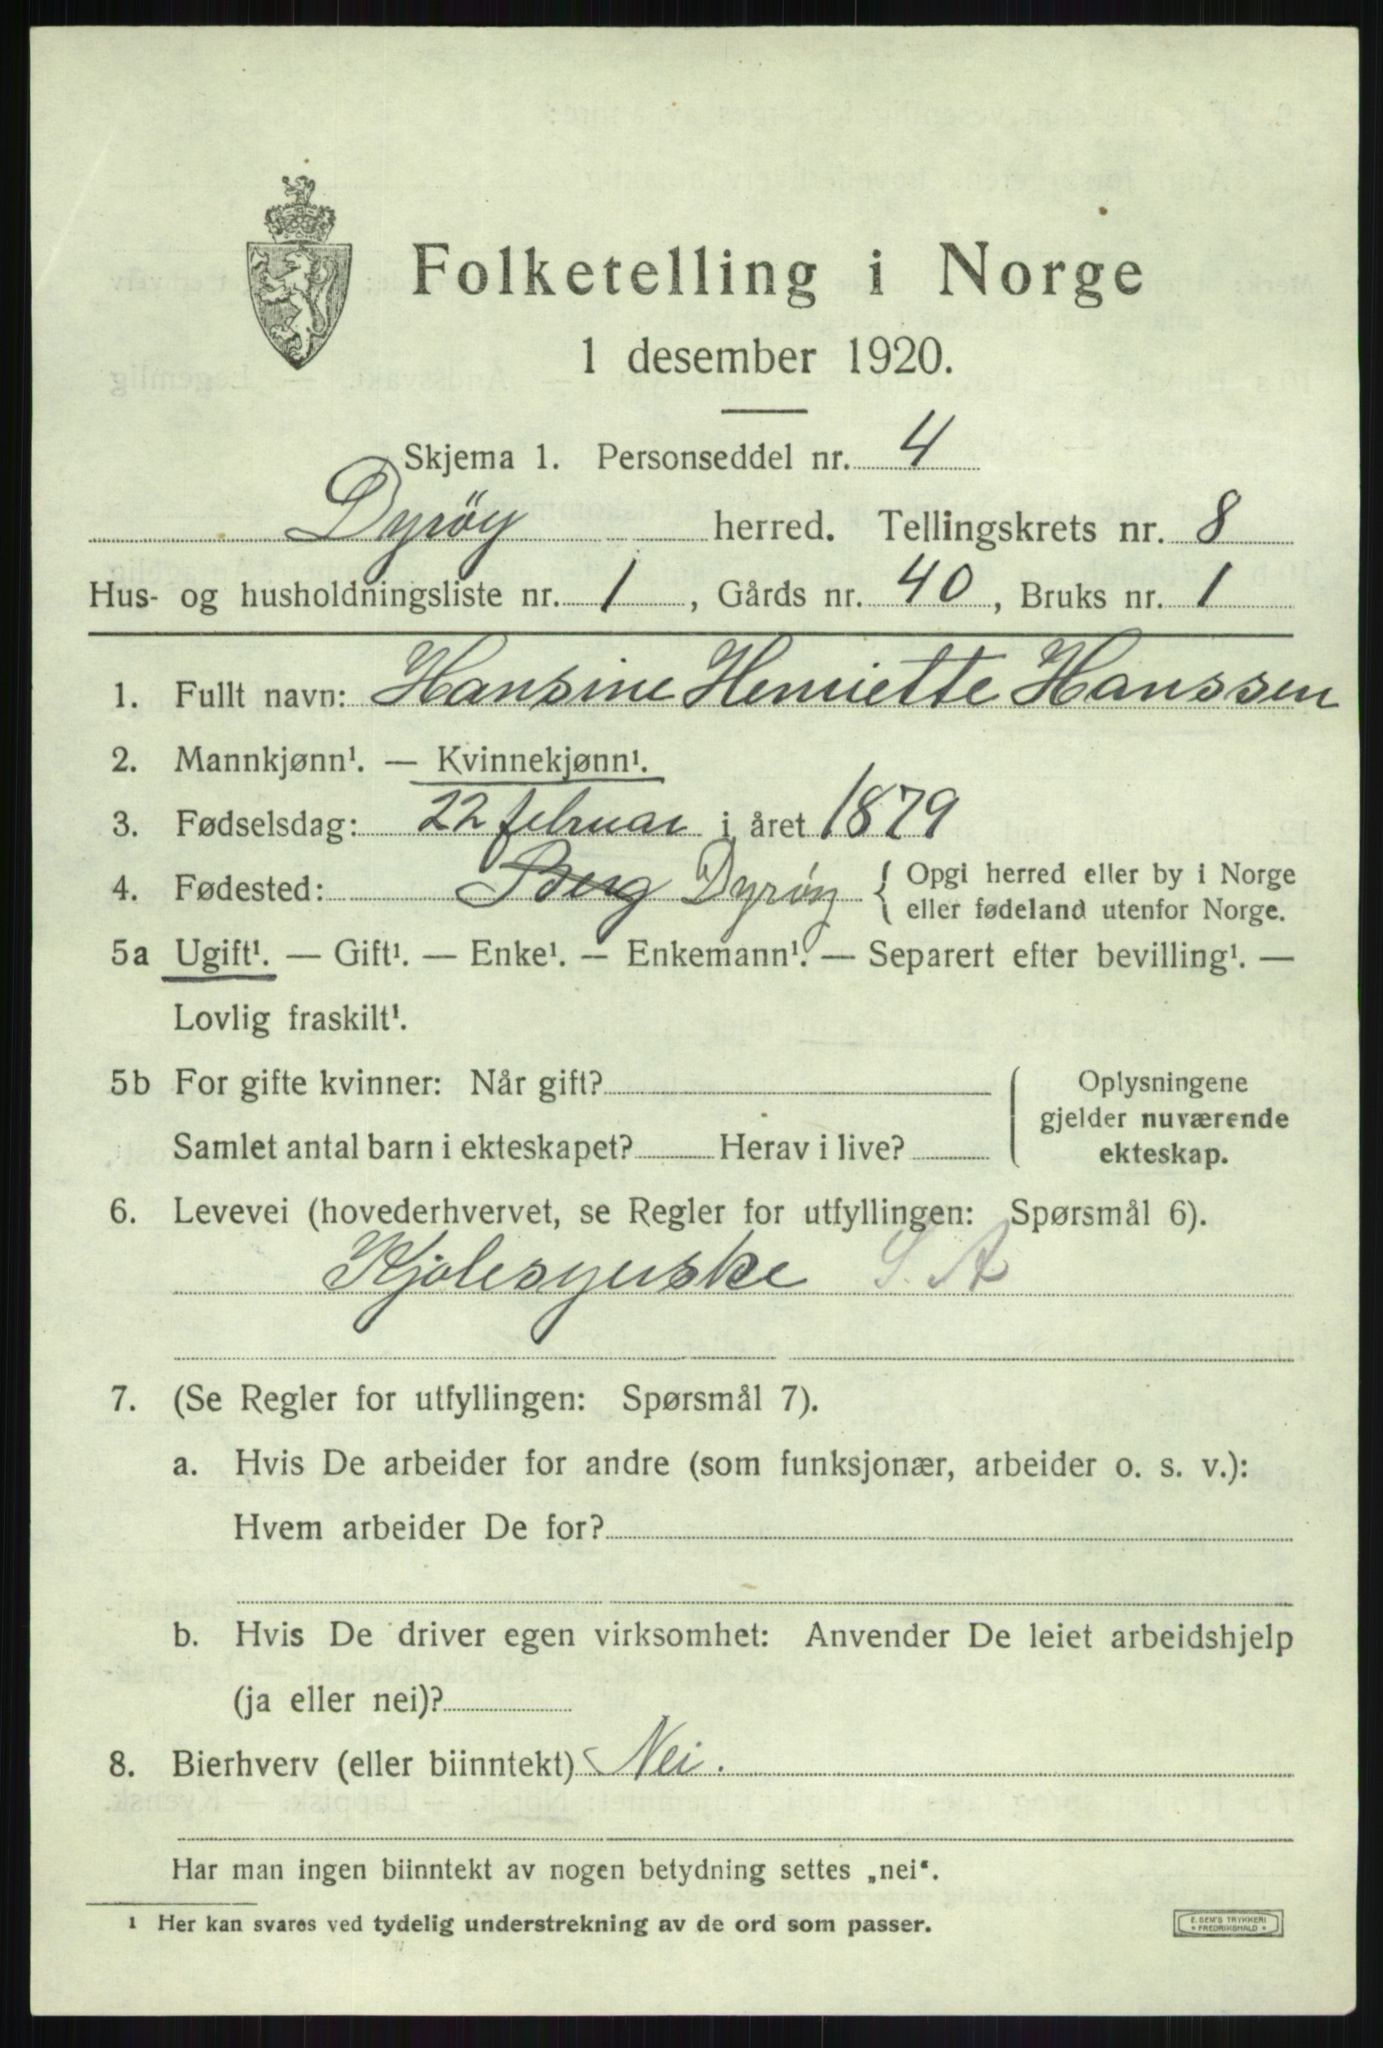 Folketelling i Norge
1 desember 1920.
Skjema 1. Personseddel nr. 4
Dyrøy herred. Tellingskrets nr. 8
Hus- og husholdningsliste nr. 1, Gårds nr. 40, Bruks nr. 1
1. Fullt navn: Hansine Henriette Hanssen
2. Mannkjønn¹. — Kvinnekjønn¹.
3. Fødselsdag: 22 februar i året 1879
4. Fødested: Berg Dyrøy { Opgi herred eller by i Norge
eller fødeland utenfor Norge.
5a Ugift¹. — Gift¹. — Enke¹. — Enkemann¹. — Separert efter bevilling¹. —
Lovlig fraskilt¹.
5b For gifte kvinner: Når gift?
Samlet antal barn i ekteskapet? Herav i live?
Oplysningene
gjelder nuværende
ekteskap.
6. Levevei (hovederhvervet, se Regler for utfyllingen: Spørsmål 6).
Kjolesyerske S. A
7. (Se Regler for utfyllingen: Spørsmål 7).
a. Hvis De arbeider for andre (som funksjonær, arbeider o. s. v.):
Hvem arbeider De for?
b. Hvis De driver egen virksomhet: Anvender De leiet arbeidshjelp
(ja eller nei)?
8. Bierhverv (eller biinntekt) Nei.
Har man ingen biinntekt av nogen betydning settes „nei“.
¹ Her kan svares ved tydelig understrekning av de ord som passer.
E. SEM'S TRYKKERI
* FREDRIKSHALD *